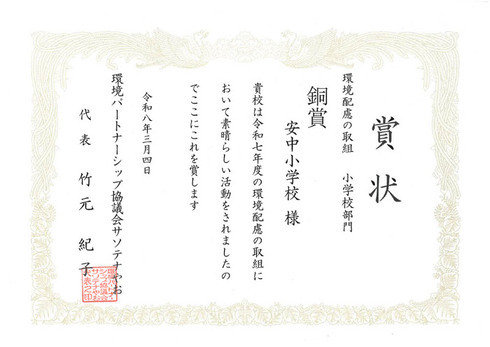 賞状
環境配慮の取組　小学校部門
銅賞
安中小学校 様
貴校は令和七年度の環境配慮の取組に
おいて素晴らしい活動をされましたの
でここにこれを賞します
令和八年三月四日
環境パートナーシップ協議会サソテナやお
代表 竹元 紀子